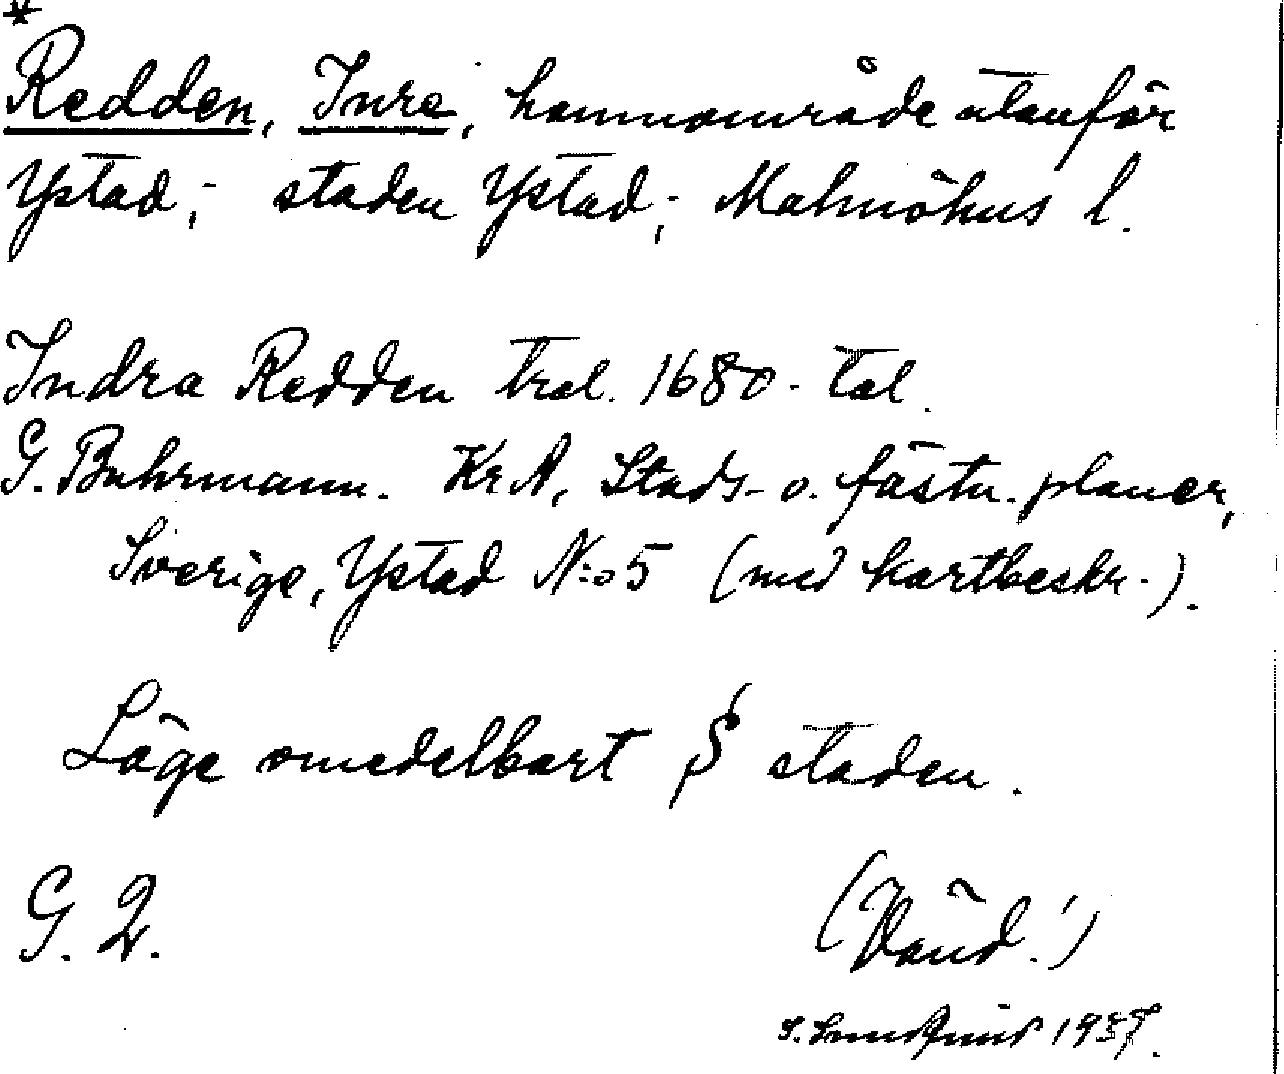 *
Redden, Inre, hamnområde utanför
Ystad; - staden Ystad; Malmöhus l.
Indra Redden trol. 1680-tal.
G. Buhrmann. KrA, Stads- o. fästn. planer,
Sverige, Ystad N:o 5 (med kartbeskr.).
Läge omedelbart S staden.
G. 2.
(Vänd!)
1937.